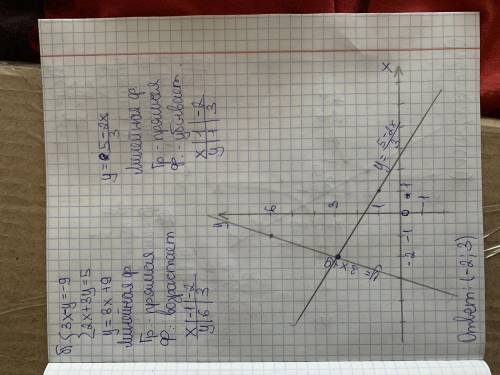 б) { 3x-y=-9
{ 2x+3y=5
y=3x+9
Линейная ф.
Гр.- прямая
ф.- возрастает
x | -1 | -2
y | 6 | 3
y = 5-2x / 3
Линейная ф.
Гр.- прямая
ф.- убывает
x | 1 | -2
y | 1 | 3
y
x
6
3
1
0
1
-1
-1
-2
y=3x+9
y= 5-2x / 3
Ответ: (-2; 3)